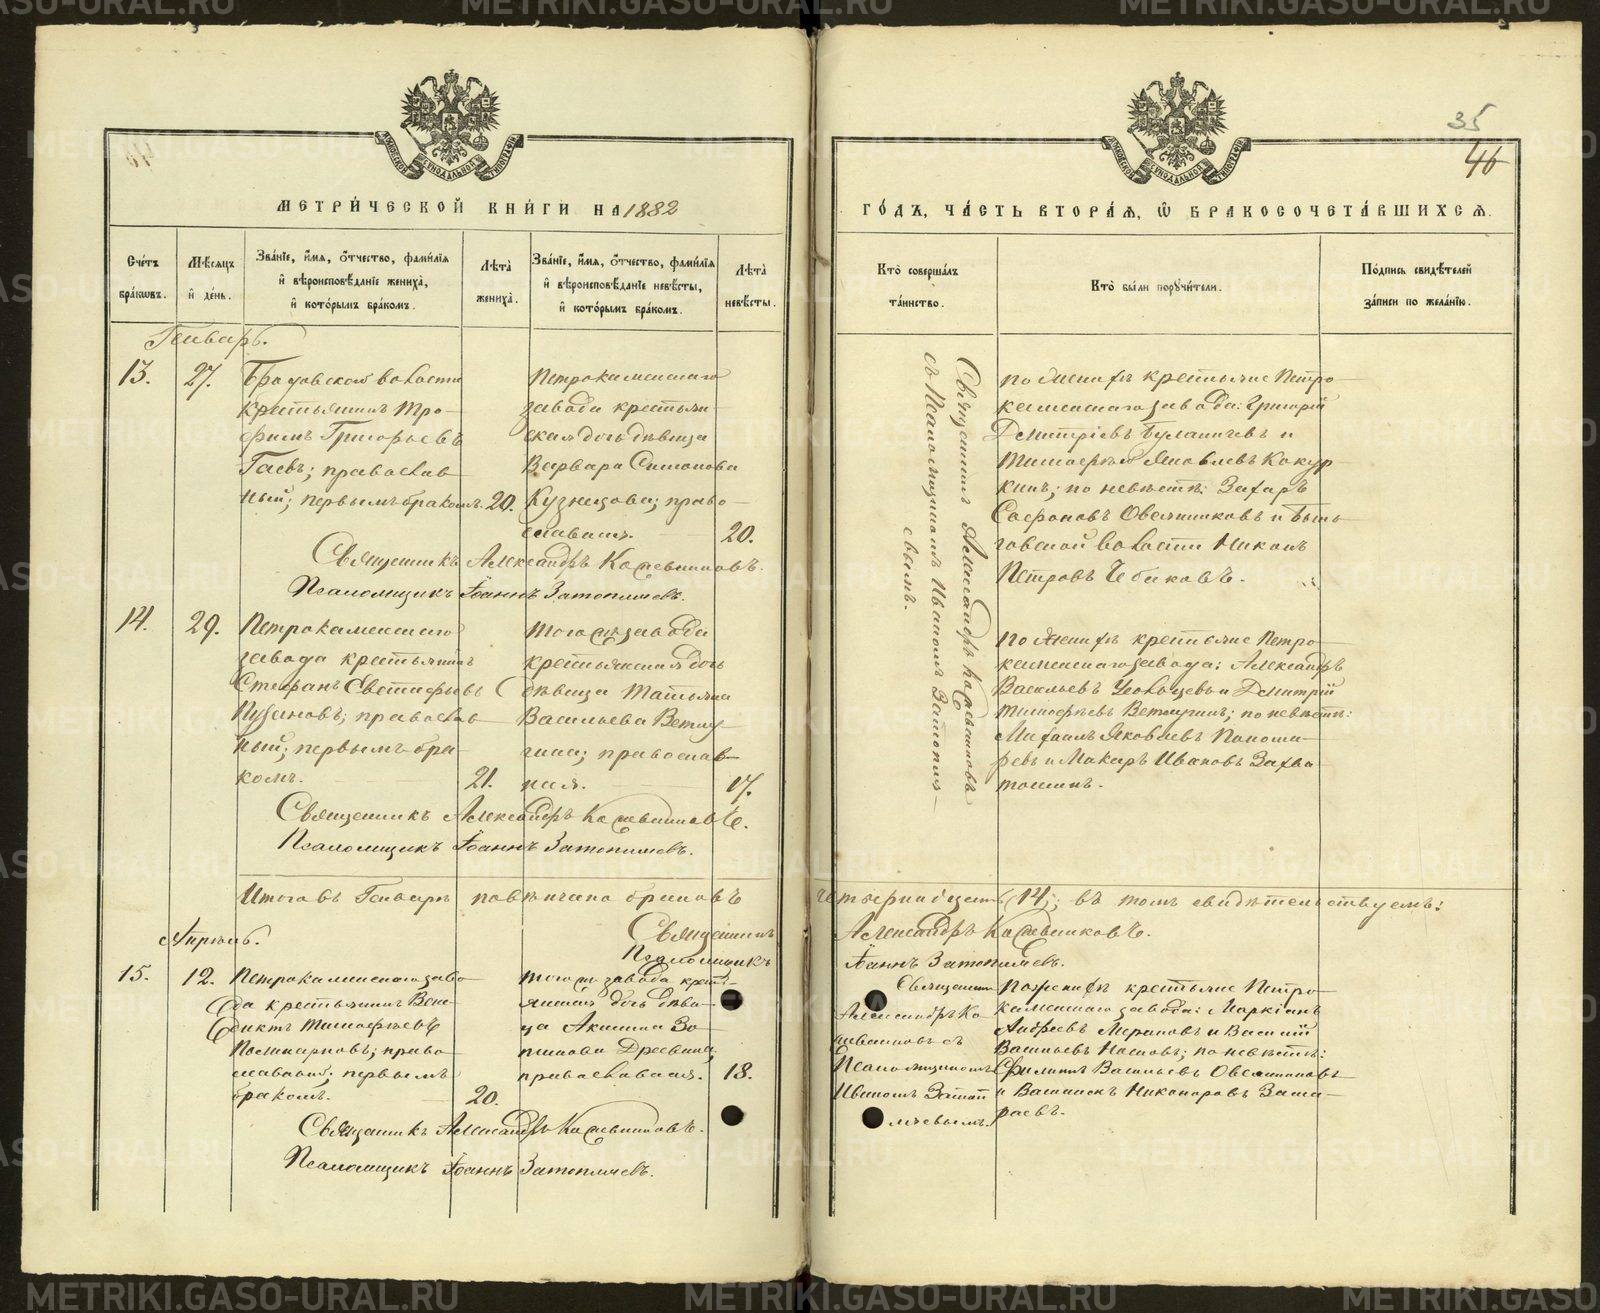 МЕТРИ́ЧЕСКОЙ КНИ́ГИ НА 1882
Сче́тъ бра́кωвъ.
Мѣ́сяцъ и҆ де́нь.
Зва́нїе, и҆́мя, ѻ҆́тчество, фами́лїя и҆ вѣроисповѣ́данїе жениха̀, и҆ кото́рымъ бра́комъ.
Лѣ́та̀ жениха̀.
Зва́нїе, и҆́мя, ѻ҆́тчество, фами́лїя и҆ вѣроисповѣ́данїе невѣ́сты, и҆ кото́рымъ бра́комъ.
Лѣ́та̀ невѣ́сты.
Генварь.
13.
27.
Крестьянинъ Тро-
фимъ Григорьевъ
Гаевъ; православ
ный; первымъ бракомъ.
20.
Петрокаменскаго
завода крестьян-
ская дочь дѣвица
Варвара Симонова
Кузнецова; право-
славная.
20.
Священникъ Александръ Кожевниковъ.
Псаломщикъ Іоаннъ Затопляевъ.
14.
29.
Петрокаменскаго
завода крестьянинъ
Стефанъ
Пузановъ; православ
ный; первымъ бра-
комъ.
21.
того же завода
крестьянская дочь
дѣвица Татьяна
Васильева Ветлу-
гина; православ-
ная.
17.
Священникъ Александръ Кожевниковъ.
Псаломщикъ Іоаннъ Затопляевъ.
Итого въ Генварѣ повѣнчано браковъ
Священникъ
Псаломщикъ
Апрѣль.
15.
12.
Петрокаменскаго заво-
да крестьянинъ Вене-
диктъ Тимофѣевъ
Поликарповъ; право-
славный; первымъ
бракомъ.
20.
того же завода крест-
янская дочь дѣви-
ца Акилина
православная.
18.
Священникъ Александръ Кожевниковъ.
Псаломщикъ Іоаннъ Затопляевъ.
35
46
ГО́ДЪ, ЧА́СТЬ ВТОРА́Я, Ѽ БРАКОСОЧЕТА́ВШИХСЯ.
Кто̀ соверша́лъ та́инство.
Кто̀ бы́ли поручи́тели.
По́дпись свидѣ́телей за́писи по жела́нїю.
Священникъ Александръ Кожевниковъ
съ Псаломщикомъ Иваномъ Затопля-
евымъ.
по женихѣ крестьяне Петро-
каменскаго завода: Григорій
Дмитріевъ Буланичевъ и
Тимофей Яковлевъ Кокур
кинъ; по невѣстѣ: Захаръ
Софоновъ Овсянниковъ и
волости Никонъ
Петровъ
по женихѣ крестьяне Петро-
каменскаго завода: Александръ
Васильевъ и Дмитрій
Тимофѣевъ Ветлугинъ; по невѣстѣ:
Михаилъ Яковлевъ
и Макаръ Ивановъ Захва-
тошинъ.
четырнадцать (14); въ томъ свидѣтельствуемъ:
Александръ Кожевниковъ.
Іоаннъ Затопляевъ.
Священникъ
Александръ Ко
жевниковъ съ
Псаломщикомъ
Иваномъ Затоп
ляевымъ.
По женихѣ крестьяне Петро-
каменскаго завода: Маркіанъ
Андреевъ и Василій
Васильевъ Носковъ; по невѣстѣ:
Филиппъ Васильевъ Овсянниковъ
и Никаноровъ